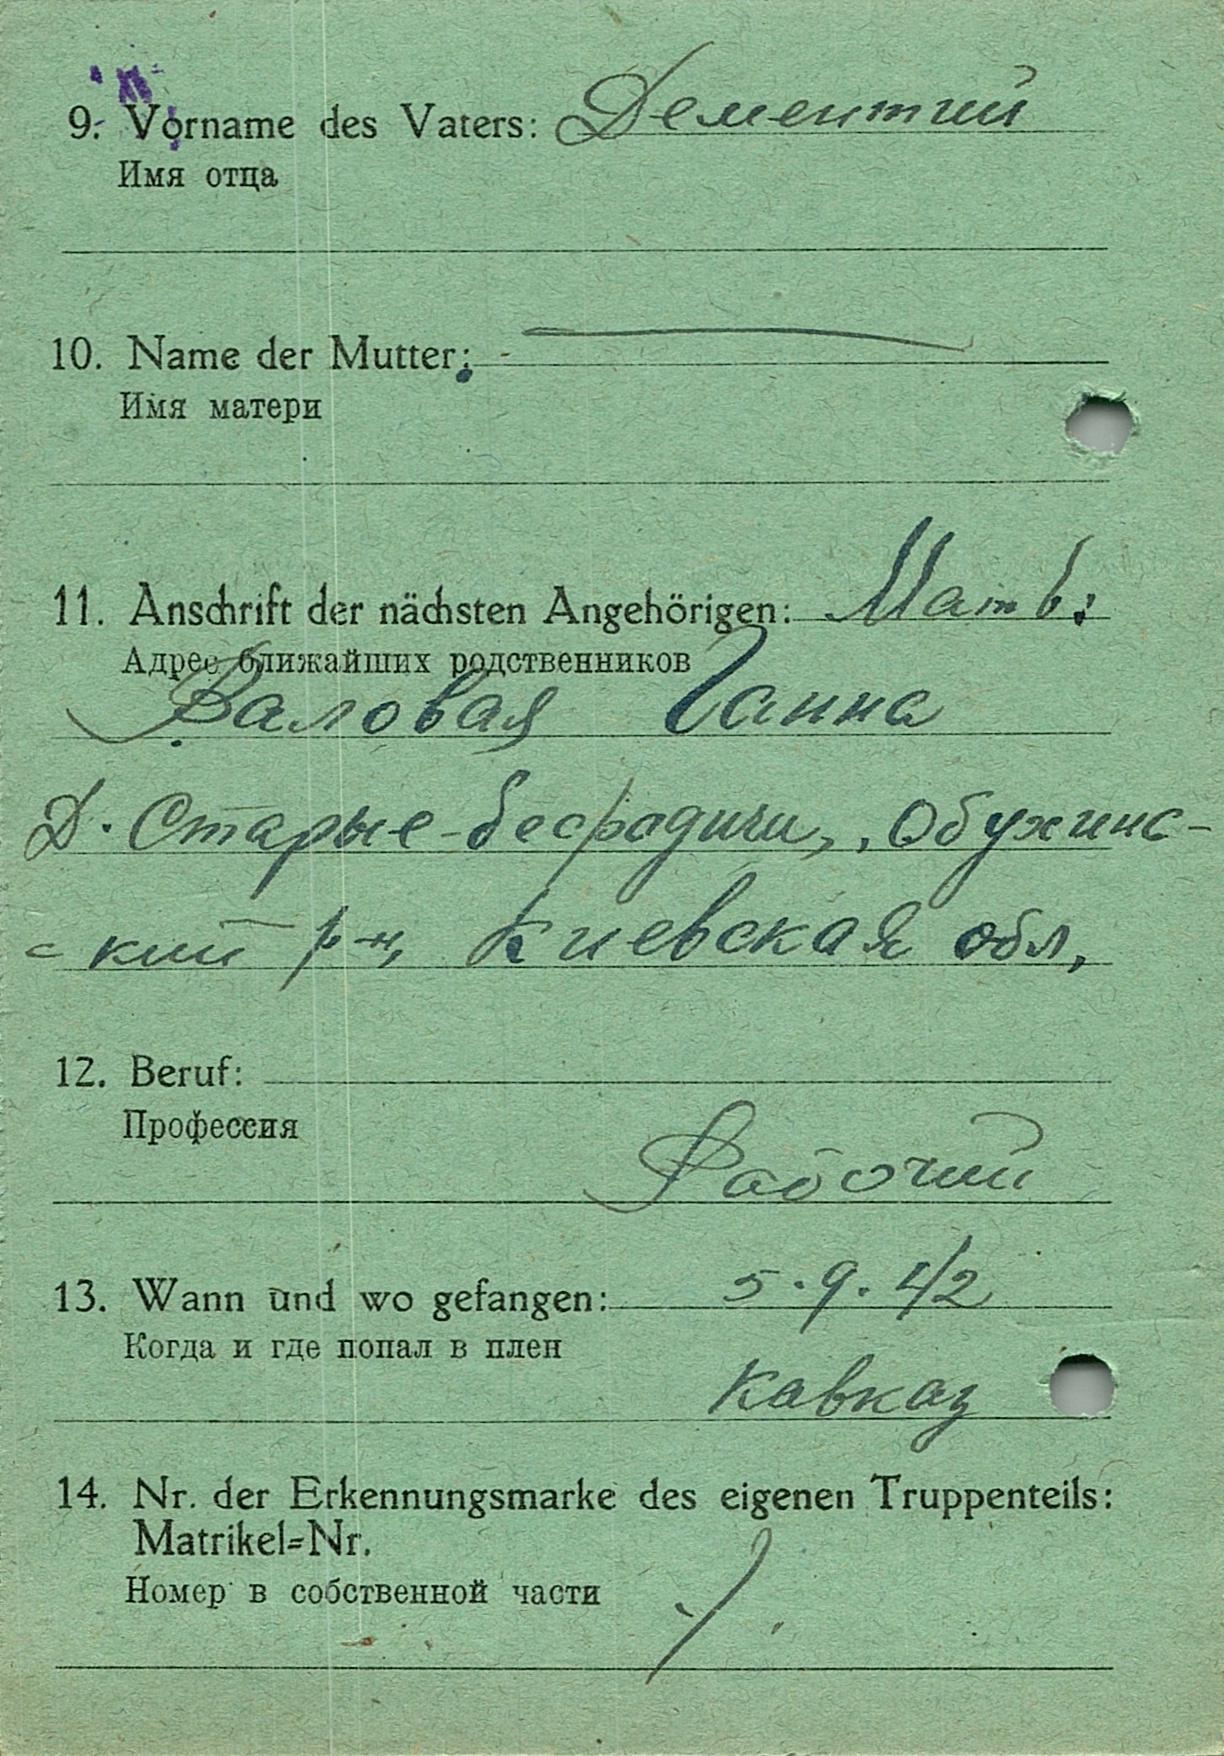 9. Vorname des Vaters: Дементий
Имя отца
10. Name der Mutter:
Имя матери
11. Anschrift der nächsten Angehörigen: Мать:
Адрес ближайших родственников
Валовая Ганна
Д. Старые-бесрадичи, Обухинс-
-кий р-н, Киевская обл,
12. Beruf:
Профессия
Рабочий
13. Wann und wo gefangen: 5.9.42
Когда и где попал в плен
Кавказ
14. Nr. der Erkennungsmarke des eigenen Truppenteils:
Matrikel=Nr.
Номер в собственной части